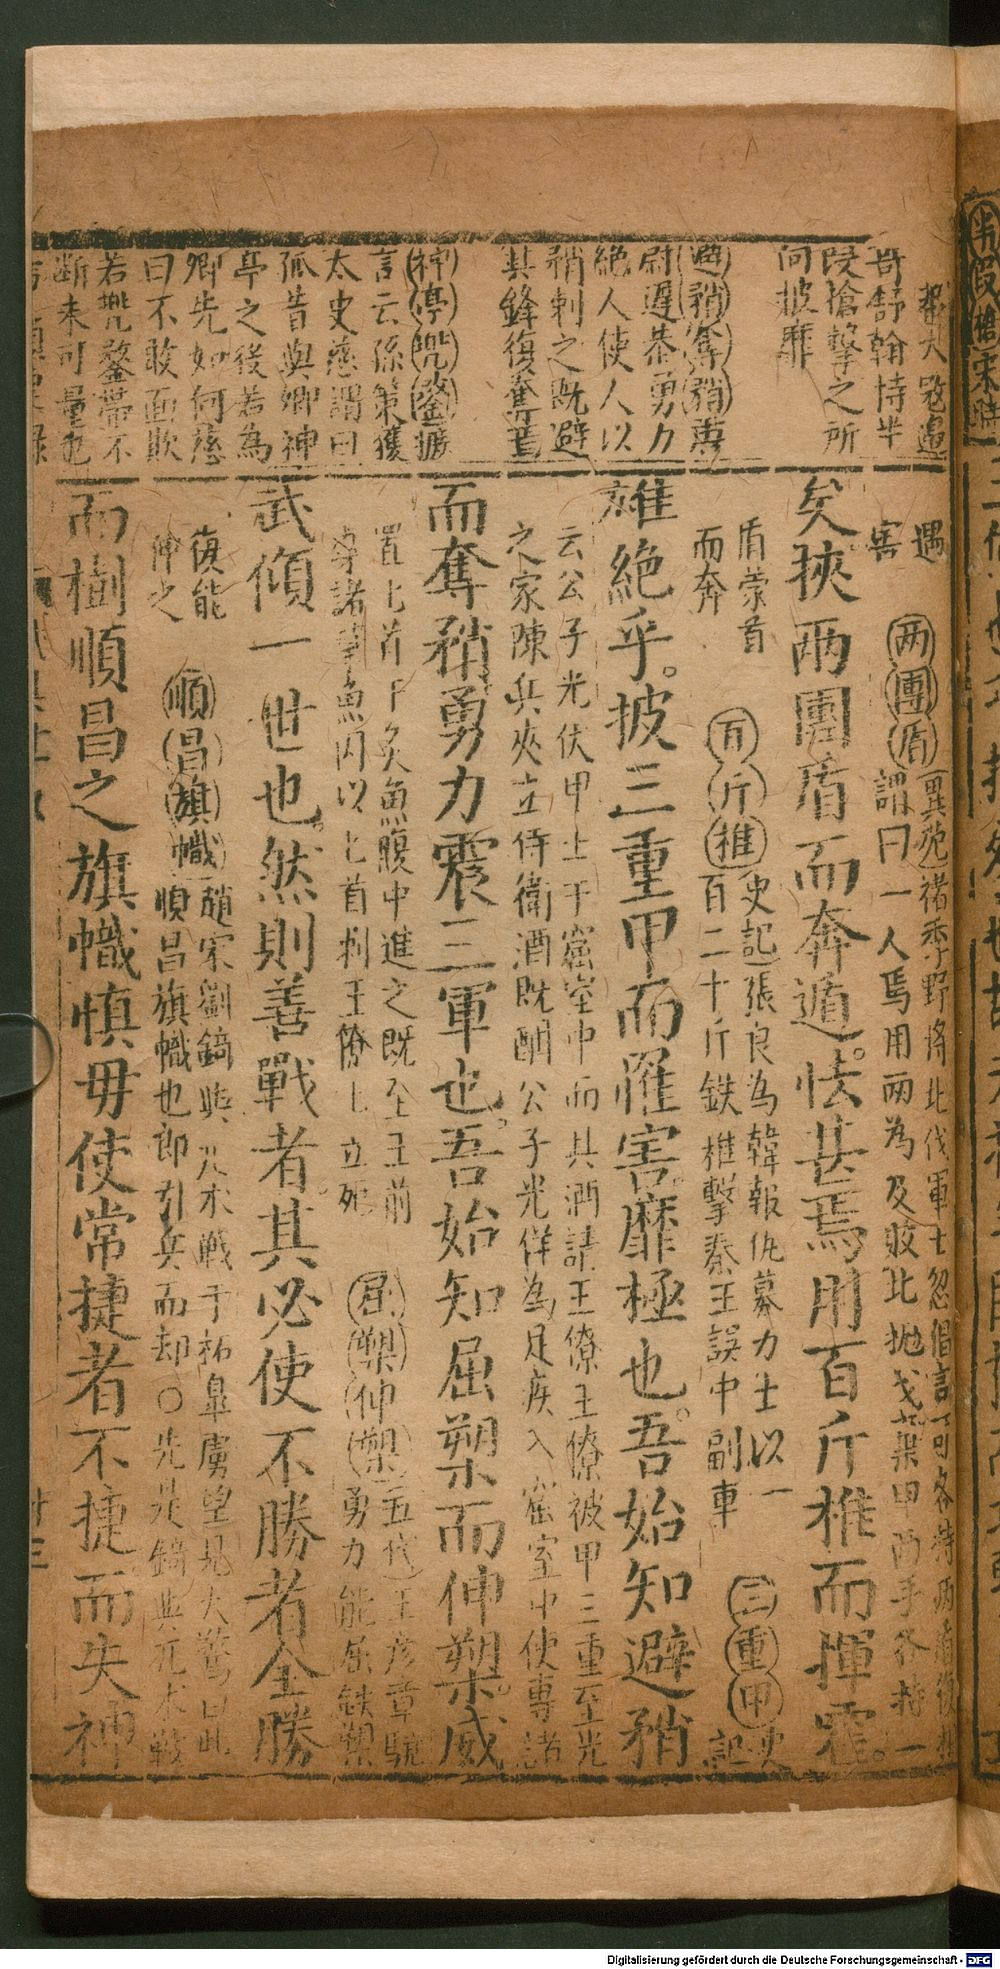 都大冦邉
哥舒翰持半
叚搶擊之所
向披靡
避矟奪矟專
尉遲恭勇力
絶人使人以
矟刺之既避
其鋒復奪焉
神停兜鍪據
言云孫策獲
太史慈謂曰
孤昔與卿神
亭之後若為
卿先如何慈
曰不敢面欺
若兠鍪帶不
断未可量也
遇
害
两團盾
異苑褚季野将北伐軍士忽倡言可各持兩盾
謂曰一人焉用两為及敗北抛戈棄甲两手各持一
矣挾兩團盾而奔遁。怯甚焉用百斤椎而揮霍。
盾蒙首
而奔
百斤椎
史記張良為韓報仇募力士以一
百二十斤鉄椎擊秦王誤中副車
三重甲
史
記
雄絶乎。披三重甲而罹害。靡極也。吾始知避矟
云公子光伏甲士于窟室中而具酒請王僚王僚被甲三重至光
之家陳兵夾立侍衛酒既酣公子光佯為足疾入窟室中使專諸
而奪矟勇力震三軍也。吾始知屈槊而伸槊。威
置匕首于炙魚腹中進之既至王前
專諸擘魚因以匕首刺王僚匕立死
屈槊伸槊
五代王彦章驍
勇力能屈鉄槊
武傾一世也。然則善戰者。其必使不勝者全勝
復能
伸之
順昌旗幟
趙宋劉錡與兀术戰于柘臯虜望見大驚曰此
順昌旗幟也郎引兵而却○先是錡與兀术戰
而樹順昌之旗幟慎毋使常捷者不捷而失神
Digitalisierung gefördert durch die Deutsche Forschungsgemeinschaft - DFG